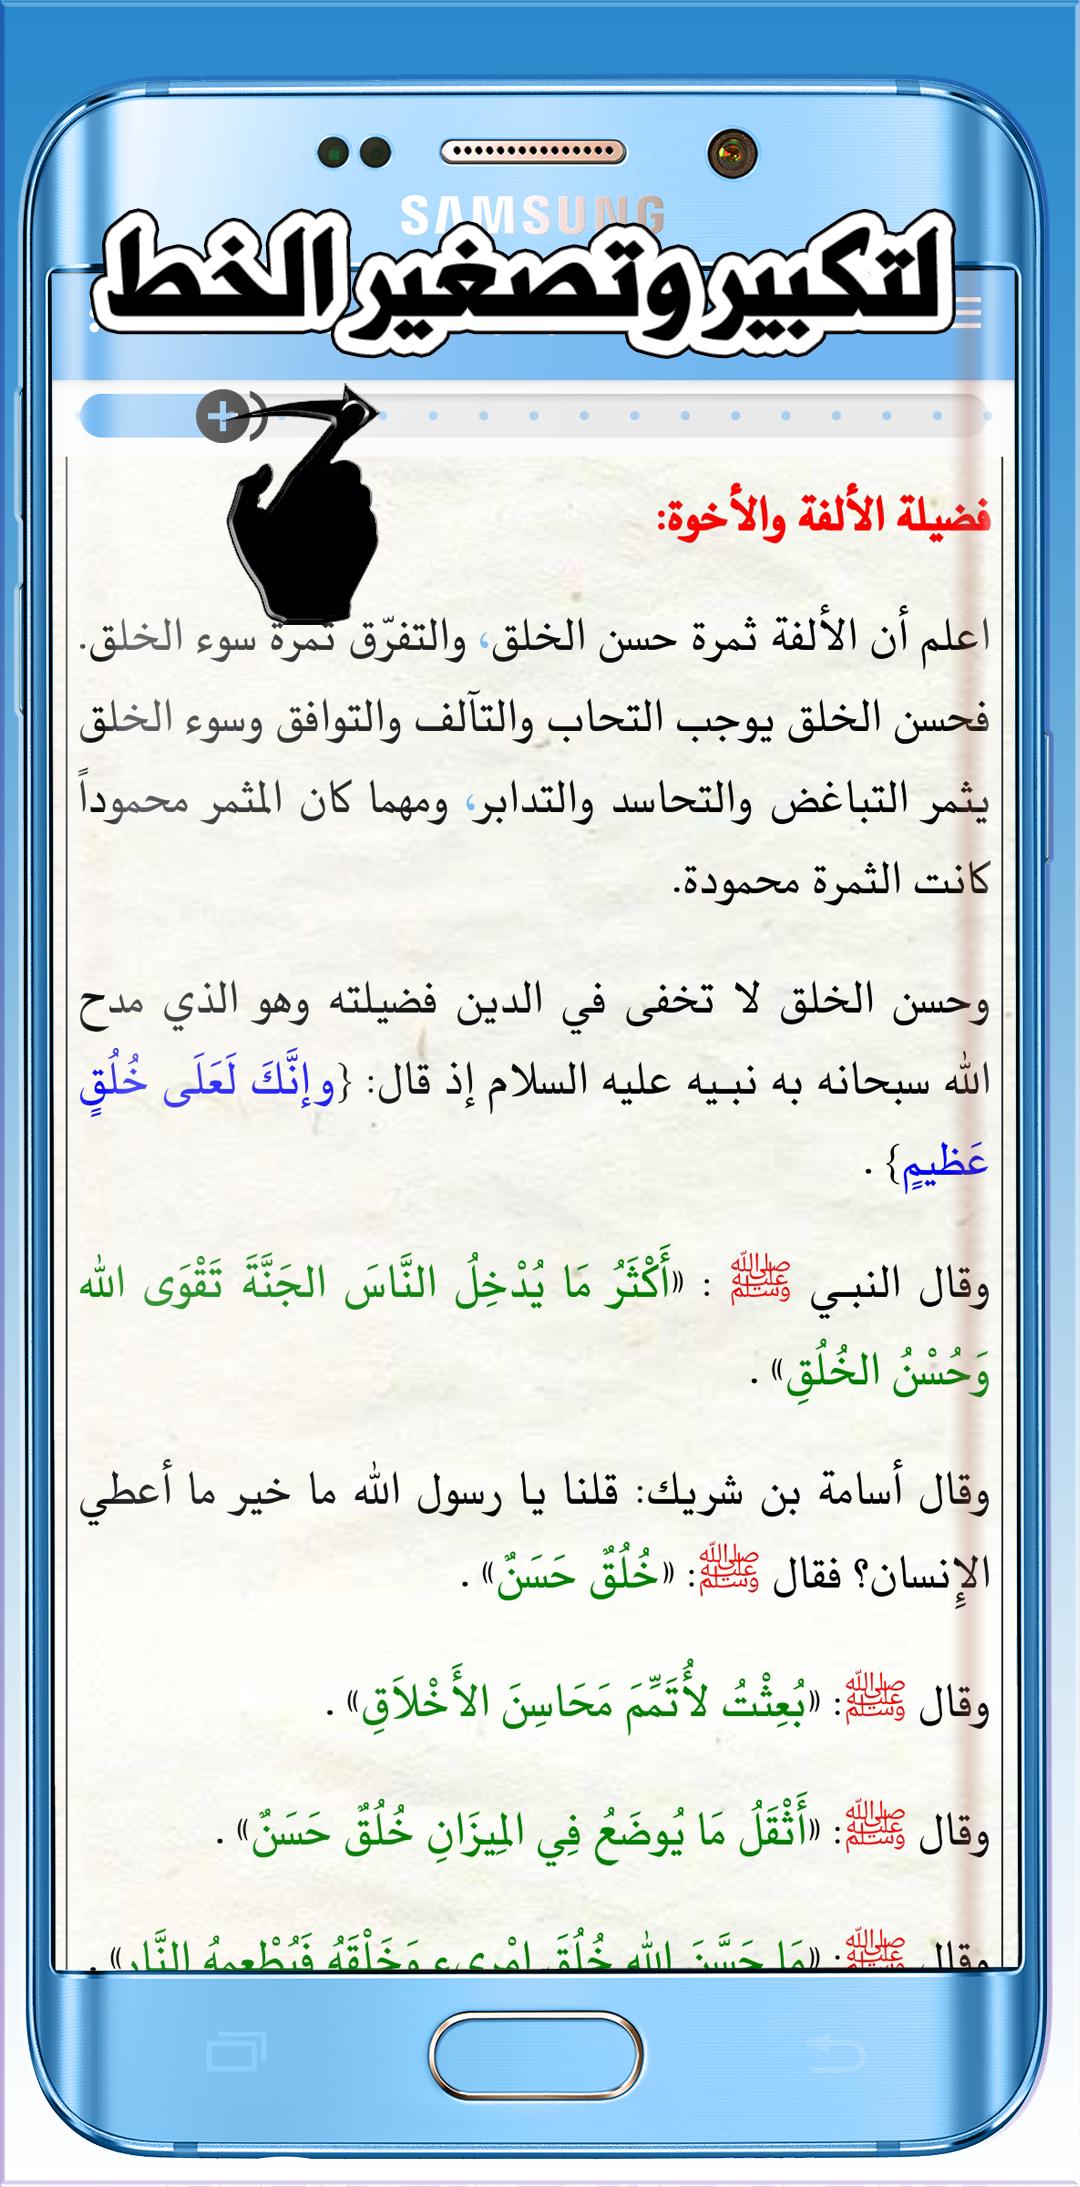 SAMSUNG
لتكبير وتصغير الخط
فضيلة الألفة والأخوة:
اعلم أن الألفة ثمرة حسن الخلق، والتفرّق ثمرة سوء الخلق.
فحسن الخلق يوجب التحاب والتآلف والتوافق وسوء الخلق
يثمر التباغض والتحاسد والتدابر، ومهما كان المثمر محموداً
كانت الثمرة محمودة.
وحسن الخلق لا تخفى في الدين فضيلته وهو الذي مدح
الله سبحانه به نبيه عليه السلام إذ قال: {وإنَّكَ لَعَلَى خُلُقٍ
عَظيمٍ} .
وقال النبي ﷺ : «أَكْثَرُ مَا يُدْخِلُ النَّاسَ الجَنَّةَ تَقْوَى الله
وَحُسْنُ الخُلُقِ» .
وقال أسامة بن شريك: قلنا يا رسول الله ما خير ما أعطي
الإِنسان؟ فقال ﷺ: «خُلُقٌ حَسَنٌ» .
وقال ﷺ: «بُعِثْتُ لأُتَمِّمَ مَحَاسِنَ الأَخْلاَقِ» .
وقال ﷺ: «أَثْقَلُ مَا يُوضَعُ فِي المِيزَانِ خُلُقٌ حَسَنٌ» .
وقال ﷺ: «مَا حَسَّنَ الله خُلُقَ امْرِىءٍ وَخَلْقَهُ فَيُطْعِمهُ النَّار» .